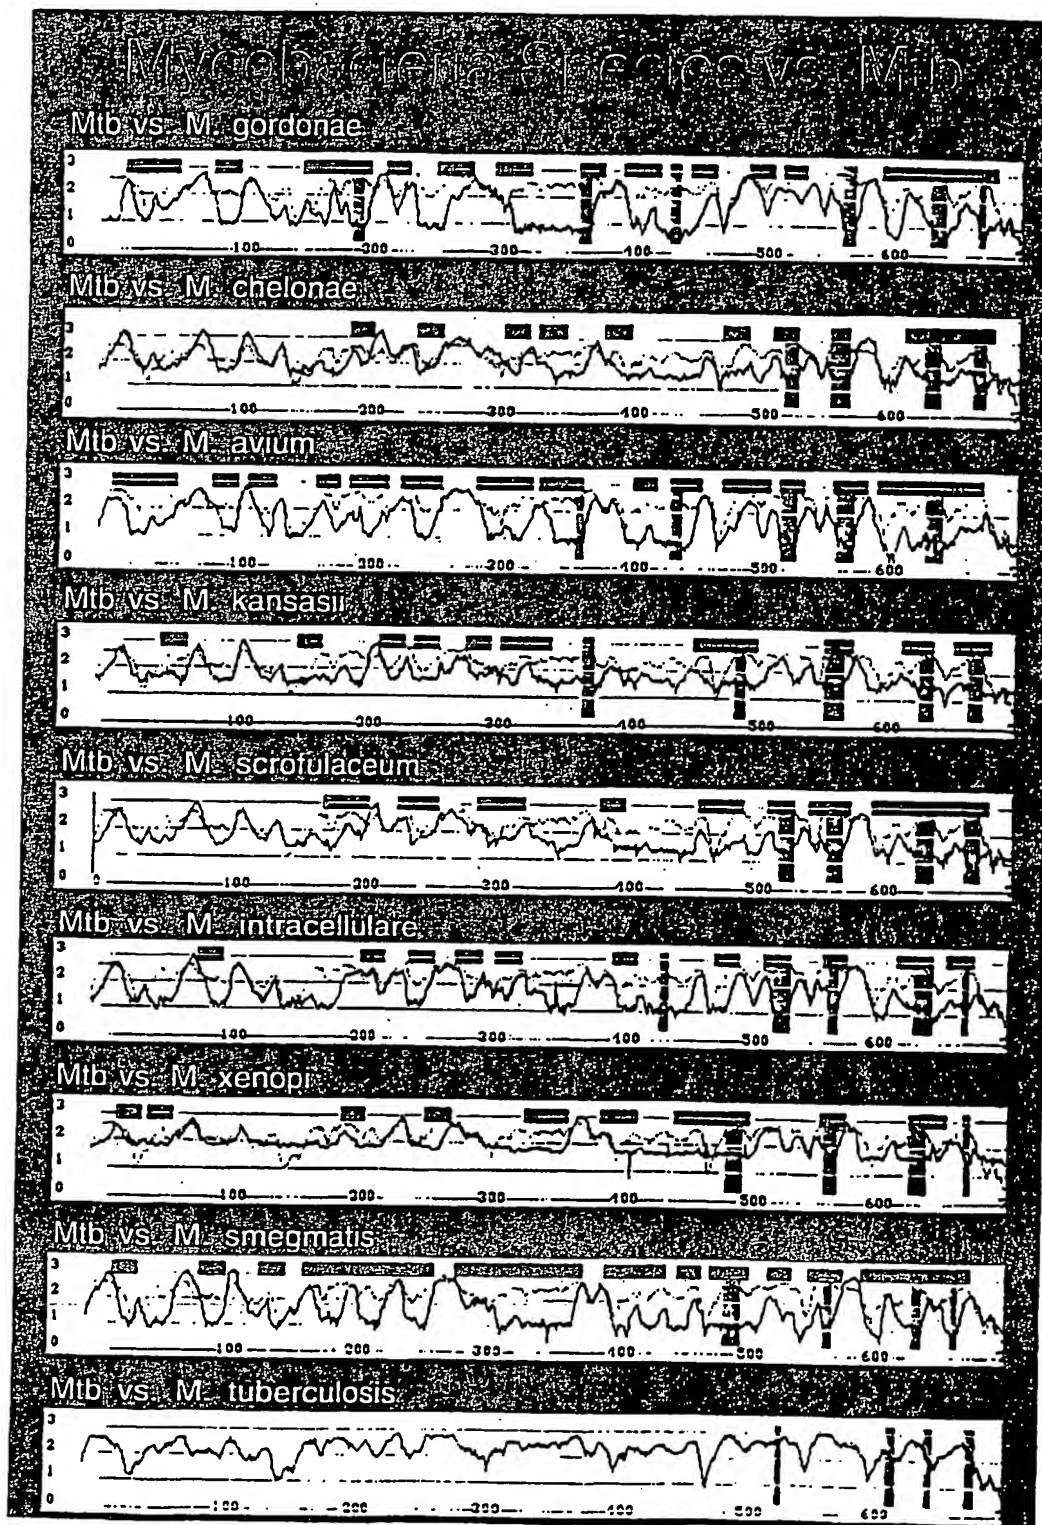 Mycobacteria Species vs. Mtb
Mtb vs. M. gordonae
3
2
1
0
100 200 300 400 500 600
Mtb vs. M. chelonae
3
2
1
0
100 200 300 400 500 600
Mtb vs. M. avium
3
2
1
0
100 200 300 400 500 600
Mtb vs. M. kansasii
3
2
1
0
100 200 300 400 500 600
Mtb vs. M. scrofulaceum
3
2
1
0
0 100 200 300 400 500 600
Mtb vs. M. intracellulare
3
2
1
0
100 200 300 400 500 600
Mtb vs. M. xenopi
3
2
1
0
100 200 300 400 500 600
Mtb vs. M. smegmatis
3
2
1
0
100 200 300 400 500 600
Mtb vs. M. tuberculosis
3
2
1
0
100 200 300 400 500 600